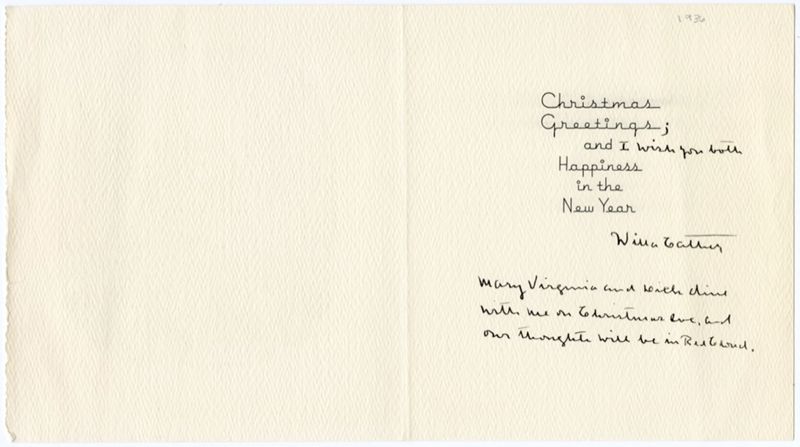 1936
Christmas
Greetings;
and I wish you both
Happiness
in the
New Year
Willa Cather
Mary Virginia and Dick dine
with me on Christmas Eve, and
our thoughts will be in Red Cloud.